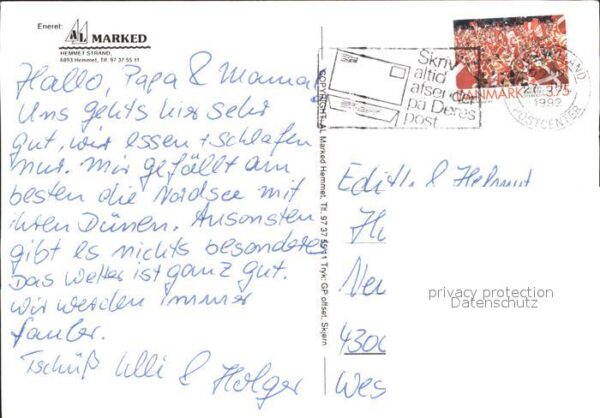 Eneret:
AL MARKED
HEMMET STRAND,
6893 Hemmet, Tlf. 97 37 55 11
Hallo, Papa & Mama,
Uns gehts hier sehr
gut, wir essen + schlafen
nur. Mir gefällt am
besten die Nordsee mit
ihren Dünen. Ansonsten
gibt es nichts besonderes
Das Wetter ist ganz gut.
wir werden immer
fauler.
Tschüß Ulli & Holger
COPYRIGHT: AL Marked Hemmet, Tlf. 97 37 55 11 Tryk: GP offset, Skjern
Skriv
altid
afsender
på Deres
post
DANMARK 3.75
1992
POSTCENTER
Edith & Helmut
H
Ne
430
Wes
privacy protection
Datenschutz